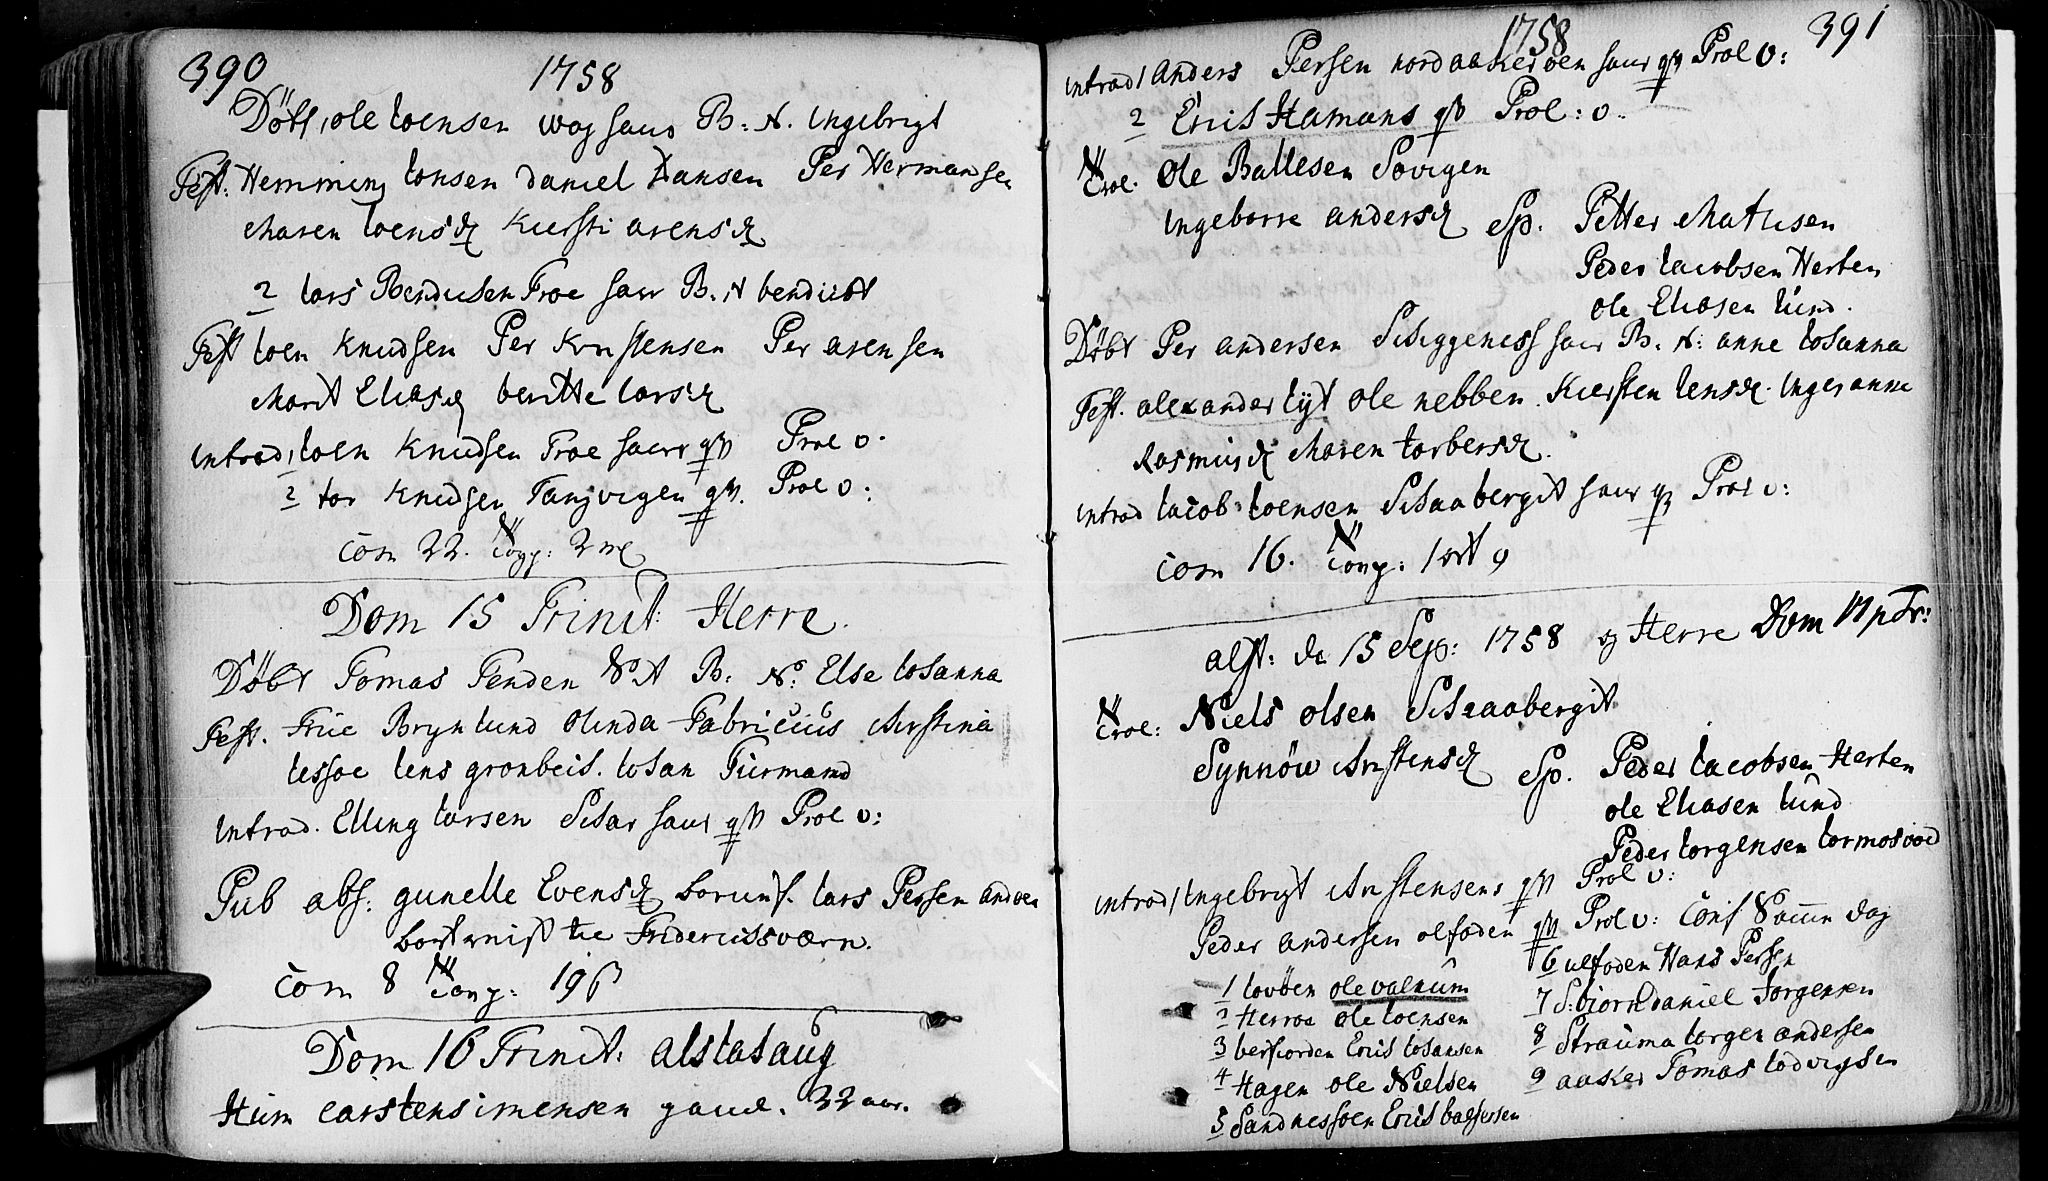 390 1758
Döbt 1 ole Joensen wog saur B: N. Ingebrigt
Test: Hemming Jonsen Daniel Hansen Per Hermansen
Maren Joensd Kiersti arensd
2 Lars Bendixen Troe saur B. N bendict
Test Joen Knudsen Per Kristensen Per arensen
Marit Eliasd beritte Larsd
introd 1 Joen Knudsen Troe saur qv Prol v.
2 tor Knudsen Tangvigen qv. Prol v:
Com 22.
Dom 15 Trinit: Herre.
Döbt Tomas Tenden B: N: Else Josanna
Test. Brynlund olinda Fabricius
Jessoe Jens gronbeis. Josan Fürmand
introd. Elling Larsen saur qv Prol v:
Pub abs: gunelle Evensd Lars Persen andoen
bortreist til Fridericsværn.
Com 8
Dom 16 Trinit: alstahaug
Hum Carsten Simensen gaml. 22 aar.
1758 391
introd 1 Anders Persen nordaakerven saur qv Prol v:
2 Eric Hamans qv Prol: v.
Trol. Ole Baltesen Sovigen
Ingeborre andersd Sp. Petter Matisen
Peder Jacobsen Herten
ole Eliasen Lund.
Döbt Per andersen Skeggeness saur B. N: anne Josanna
Test. alexander Lyt ole nebben. Kiersten Jensd. Inger anne
Rasmusd Maren torbersd.
introd Jacob Joensen Skaabergit saur qv Prol v:
Com 16. Cong: 1
alst: de 15 Sep: 1758 og Herre Dom 17 p Tr:
Trol: Niels olsen Skaabergit
Synnöw Kristensd Sp. Peder Jacobsen Herten
ole Eliasen Lund
Peder Jorgensen tormosvoed
introd 1 Ingebrigt Kristensens qv Prol v:
Peder andersen olfoden qv Prol v: Conf Samme dag
1 Lovöen ole valnum
2 Herroe ole Joensen
3 berfiorden Eric Josansen
4 Hagen ole Nielsen
5 Sandnessoen Eric balsersen
6 ulfoden Hans Persen
7 S:biorn Daniel Jorgensen
8 Strauma Jorgen andersen
9 aaker Tomas Lodvigsen